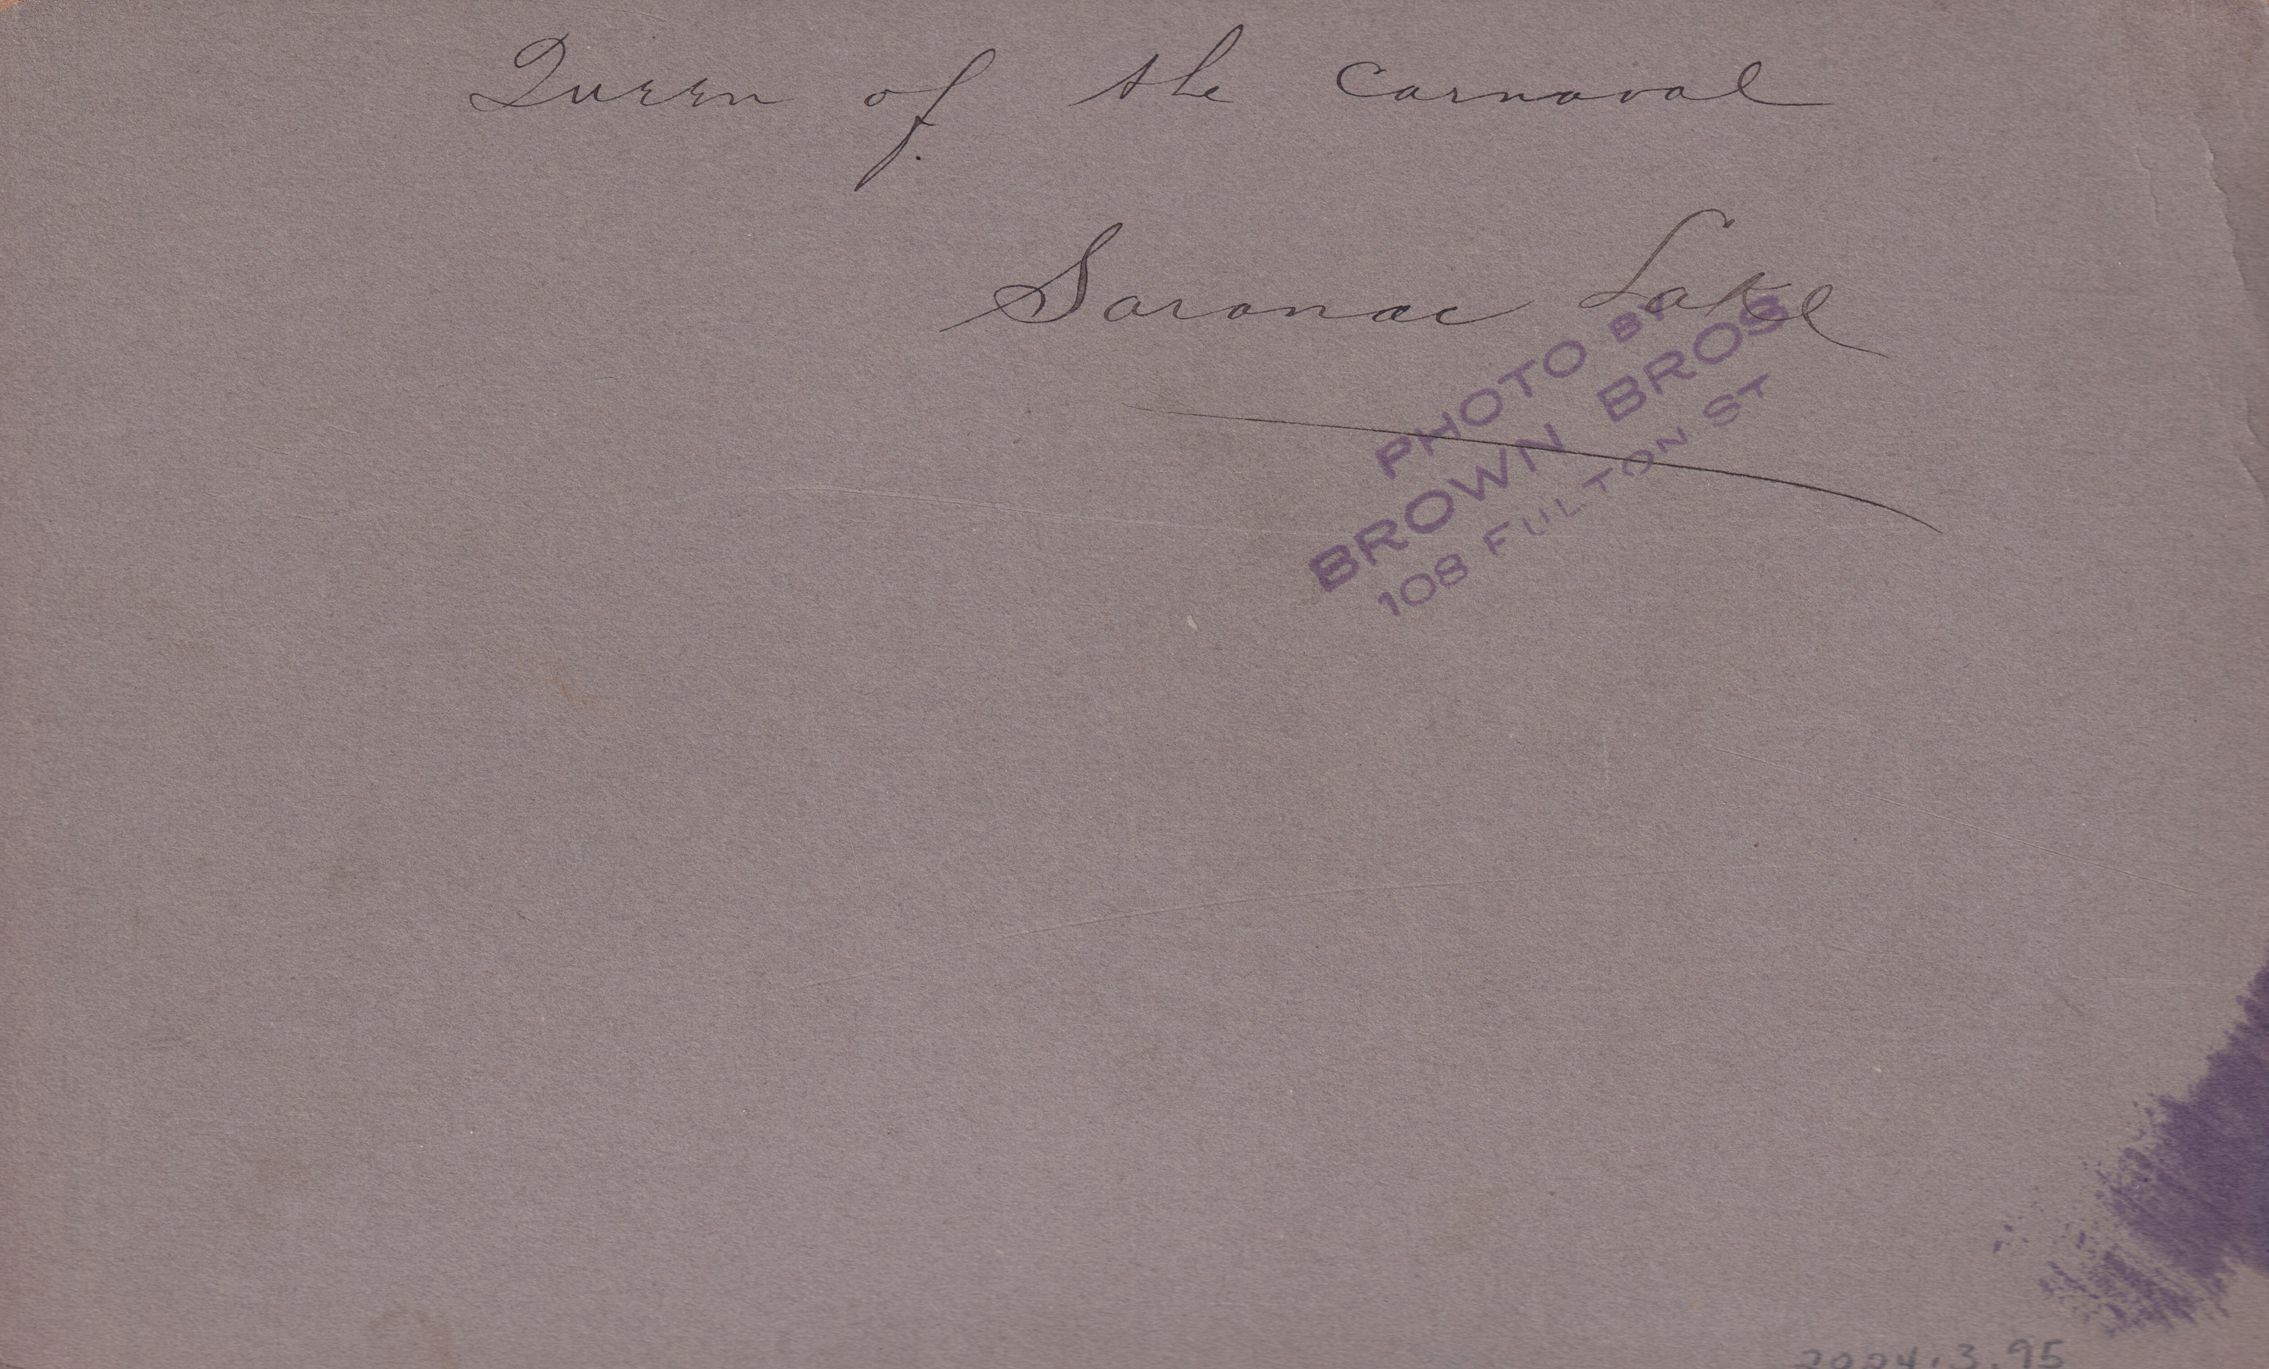 Queen of the Carnaval
Saranac Lake
PHOTO BY
BROWN BROS
108 FULTON ST
2024.3.95